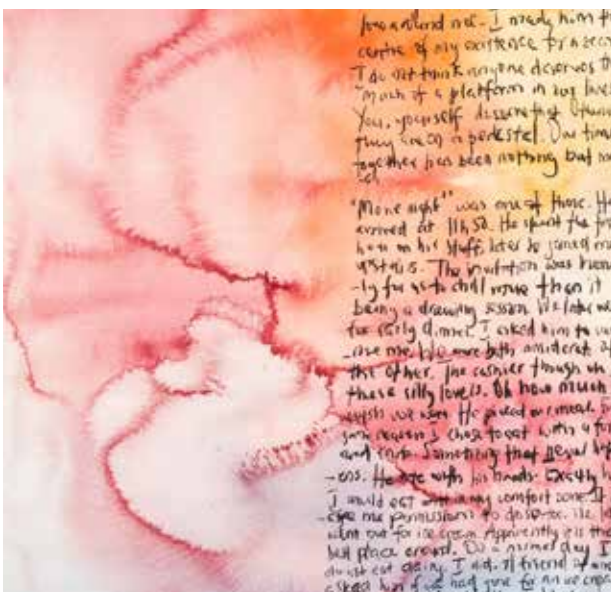 love around me. I made him the
centre of my existence for a sec
I do not think anyone deserves th
much of a platform in our lives
You, yourself deserve that
they are on a pedestal. Our tim
together has been nothing but m
"Movie night" was one of those. He
arrived at 11h50. He spent the fir
hour on his stuff, later he joined m
upstairs. The invitation was
-ly for us to chill more than it
being a drawing session. We later we
for early dinner. I asked him to
me. We were both
the other. The cashier though
these silly lovers. Oh how much
we were. He picked our meal. F
some reason I chose to eat with a for
and knife. Something that never hap
-ens. He ate with his hands. Exactly h
I would eat in my comfort zone.
me permissions to
went out for ice cream. Apparently it is the
best place around. On a normal day I
do not eat dairy. I did. A friend
asked him if we had gone for an ice cream